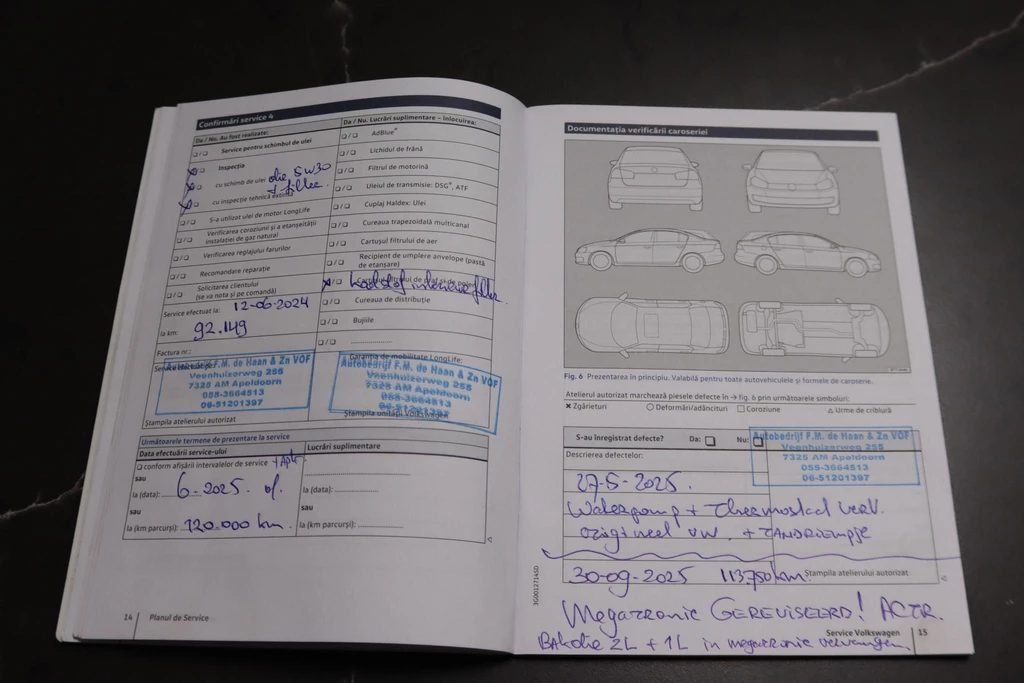 Confirmări service 4
Da / Nu. Au fost realizate:
Service pentru schimbul de ulei
Inspecția
cu schimb de ulei olie 5W30
+ filter.
cu inspecție tehnică
S-a utilizat ulei de motor LongLife
Verificarea coroziunii și a etanșeității
instalației de gaz natural
Verificarea reglajului farurilor
Recomandare reparație
Solicitarea clientului
(se va nota și pe comandă)
Service efectuat la: 12-06-2024
la km: 92.149
Factura nr.:
Autobedrijf F.M. de Haan & Zn VOF
Veenhuizerweg 255
7325 AM Apeldoorn
055-3664513
06-51201397
Ștampila atelierului autorizat
Da / Nu. Lucrări suplimentare – înlocuirea:
AdBlue®
Lichidul de frână
Filtrul de motorină
Uleiul de transmisie: DSG®, ATF
Cuplaj Haldex: Ulei
Cureaua trapezoidală multicanal
Cartușul filtrului de aer
Recipient de umplere anvelope (pastă
de etanșare)
koolstof interieurfilter.
Cureaua de distribuție
Bujiile
Garanția de mobilitate LongLife:
Autobedrijf F.M. de Haan & Zn VOF
Veenhuizerweg 255
7325 AM Apeldoorn
055-3664513
06-51201397
Ștampila unității Volkswagen
Următoarele termene de prezentare la service
Data efectuării service-ului
conform afișării intervalelor de service
sau
la (data): 6-2025. of.
sau
la (km parcurși): 120.000 km.
Lucrări suplimentare
la (data):
sau
la (km parcurși):
14 Planul de Service
Documentația verificării caroseriei
Fig. 6 Prezentarea în principiu. Valabilă pentru toate autovehiculele și formele de caroserie.
Atelierul autorizat marchează piesele defecte în → fig. 6 prin următoarele simboluri:
Zgârieturi Deformări/adâncituri Coroziune Urme de criblură
S-au înregistrat defecte? Da: Nu:
Descrierea defectelor:
Autobedrijf F.M. de Haan & Zn VOF
Veenhuizerweg 255
7325 AM Apeldoorn
055-3664513
06-51201397
27-5-2025.
Waterpomp + thermostaat verv.
origineel VW. + TANDRIEMPJE
30-09-2025 113750 km.
Ștampila atelierului autorizat
3G0012714SD
Megatronic GEREVISEERD! ACTR.
BAKolie 2L + 1L in megatronic vervangen.
Service Volkswagen 15